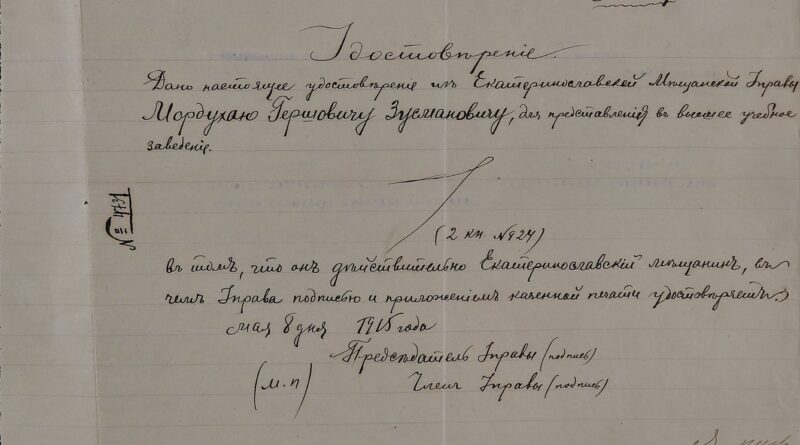 Удостовѣреніе.
Дано настоящее удостовѣреніе изъ Екатеринославской Мѣщанской Управы
Мордухаю Гершовичу Зусмановичу, для представленія въ высшее учебное
заведеніе.
№ 4731
(2 кн. № 924)
въ томъ, что онъ дѣйствительно Екатеринославскій мѣщанинъ, въ
чемъ Управа подписью и приложеніемъ казенной печати удостовѣряетъ.
Мая 8 дня 1915 года
Предсѣдатель Управы (подпись)
(М.П) Членъ Управы (подпись)